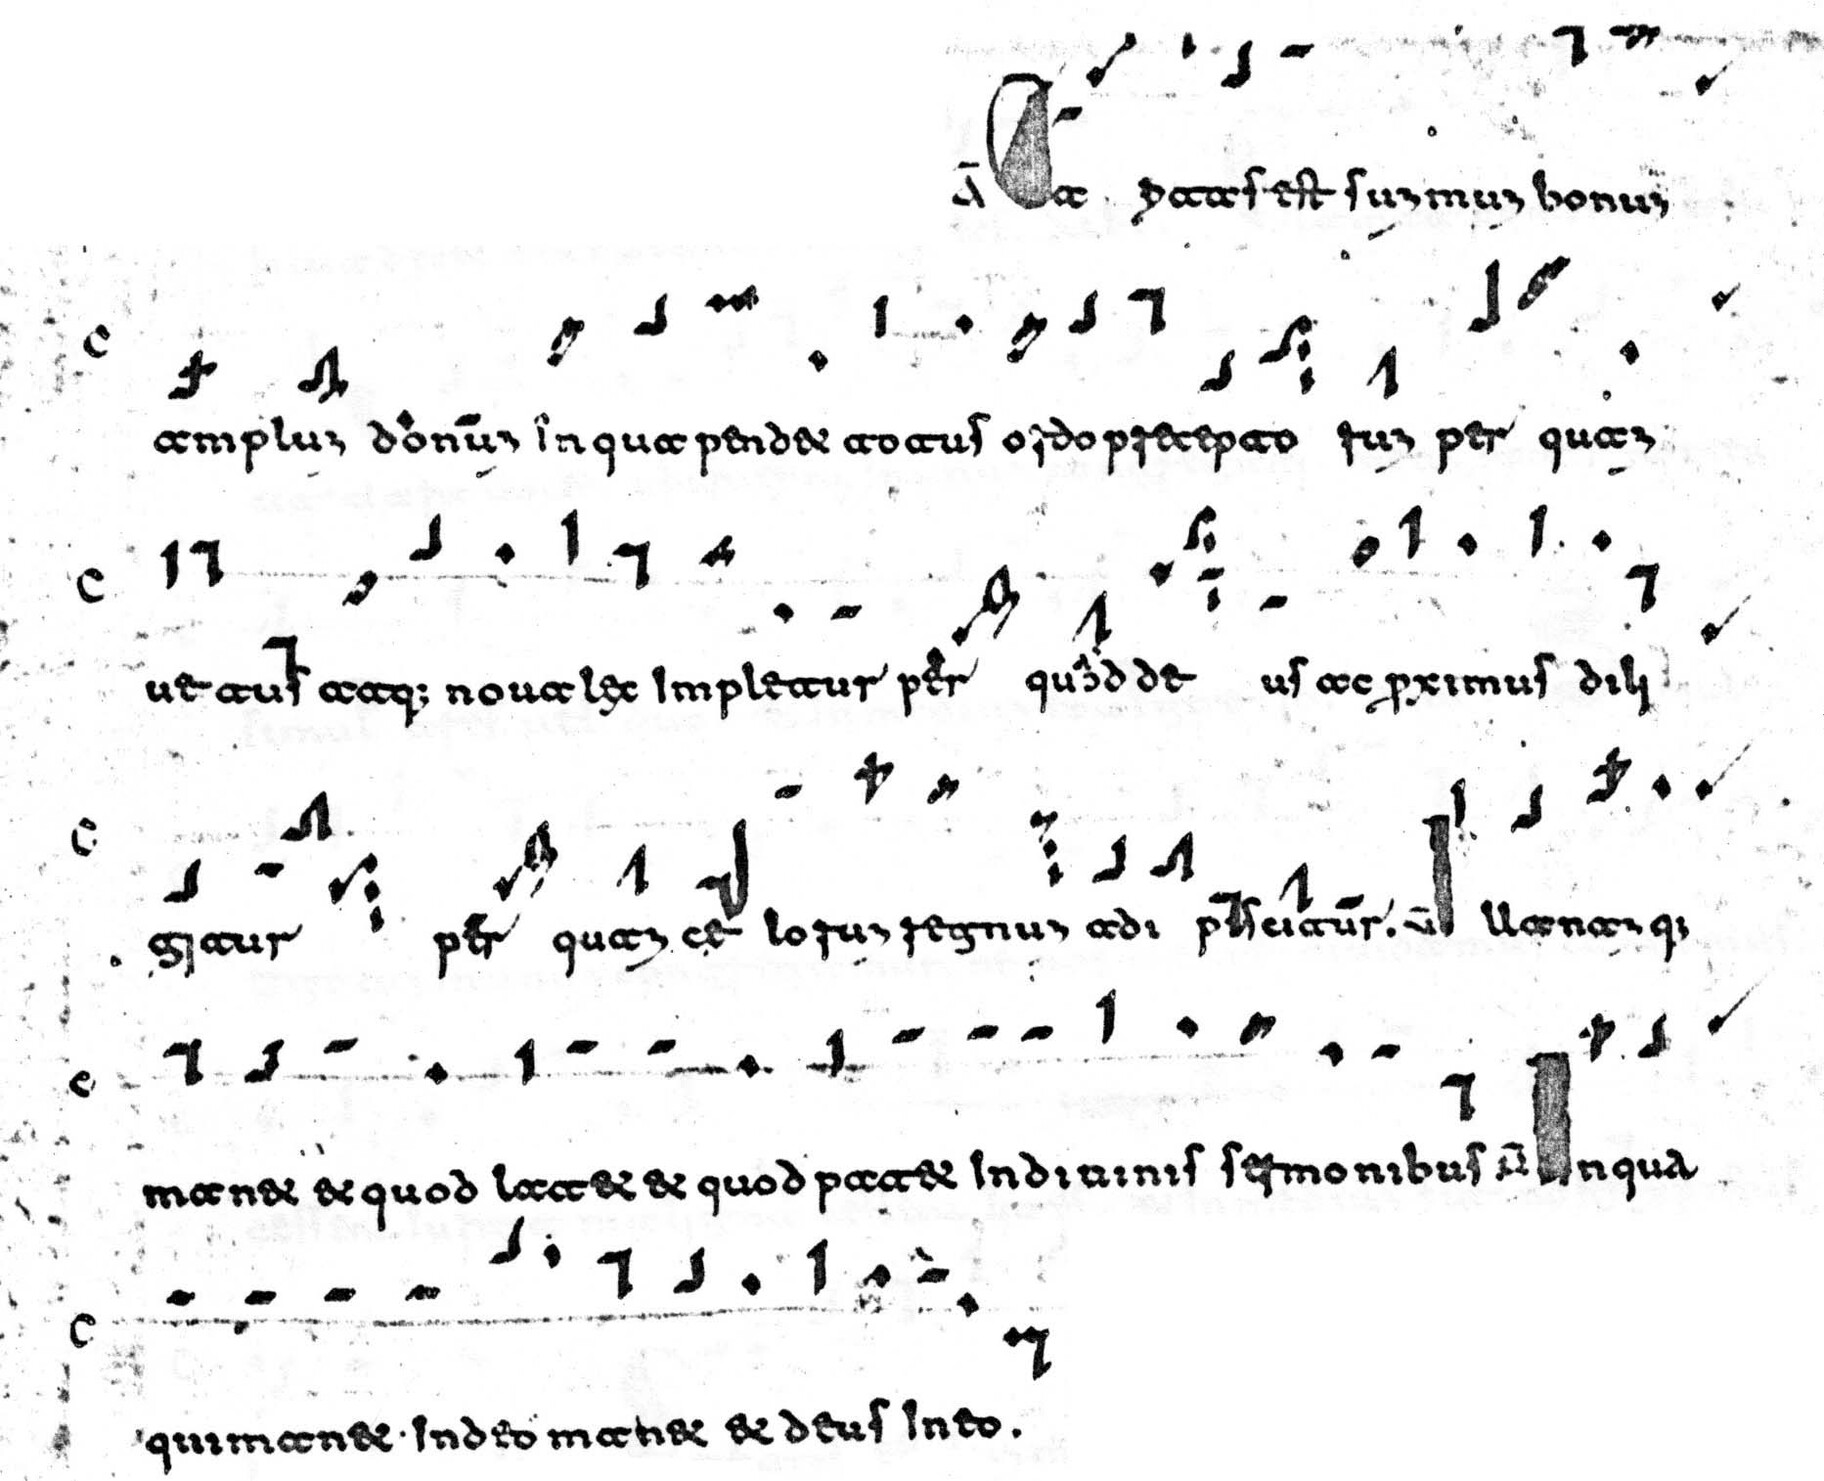 Ā Ca ritas est summum bonum
amplum donum in qua pendet totus ordo preceptorum per quam
uetus atq; noua lex Impletur per quod deus ac proximus dili
gitur per quam celorum regnum adipiscitur. Ū Illa namq;
manet et quod latet et quod patet In diuinis sermonibus Ū In qua
qui manet In deo manet et deus In eo.